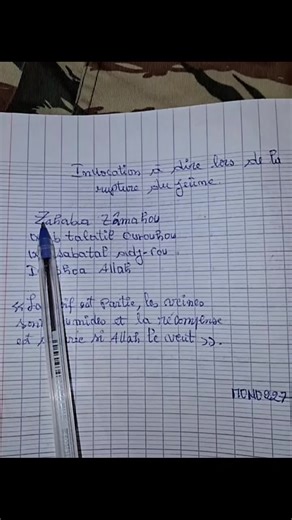 Invocation à dire lors de la
rupture du jeûne
Zahaba Zâmahou
talatil Curouhou
sabatal adj-rou
Allah
est Partie, les veines
sont umides et la récompense
et si Allah le veut >>.
MOND227